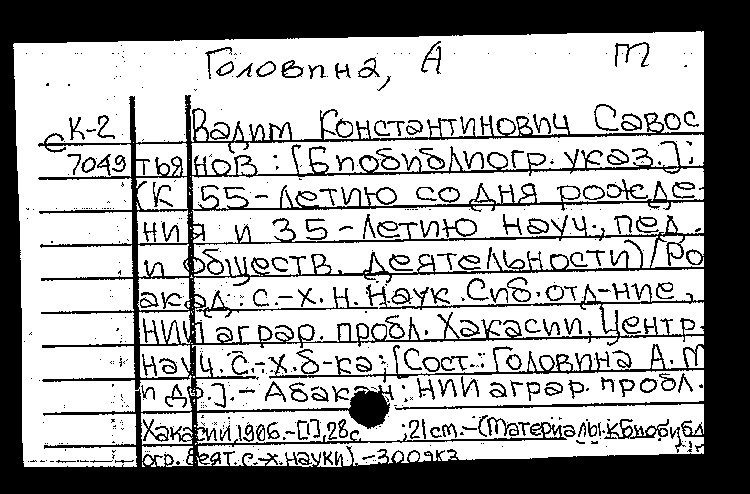 Головина, А М
К-2 Вадим Константинович Савос
с 7049 тьянов : [Биобиблиогр. указ.] :
(К 55-летию со дня рожде-
ния и 35-летию науч., пед.
и обществ. деятельности) / Ро
акад. с.-х. н. Наук. Сиб. отд-ние,
НИИ аграр. пробл. Хакасии, Центр.
науч. с.-х. б-ка; [Сост.: Головина А. М
и др.]. - Абакан : НИИ аграр. пробл.
Хакасии, 1996. - [1], 28 с ; 21 см. - (Материалы к биобибл
огр. деят. с.-х. науки). - 300 экз